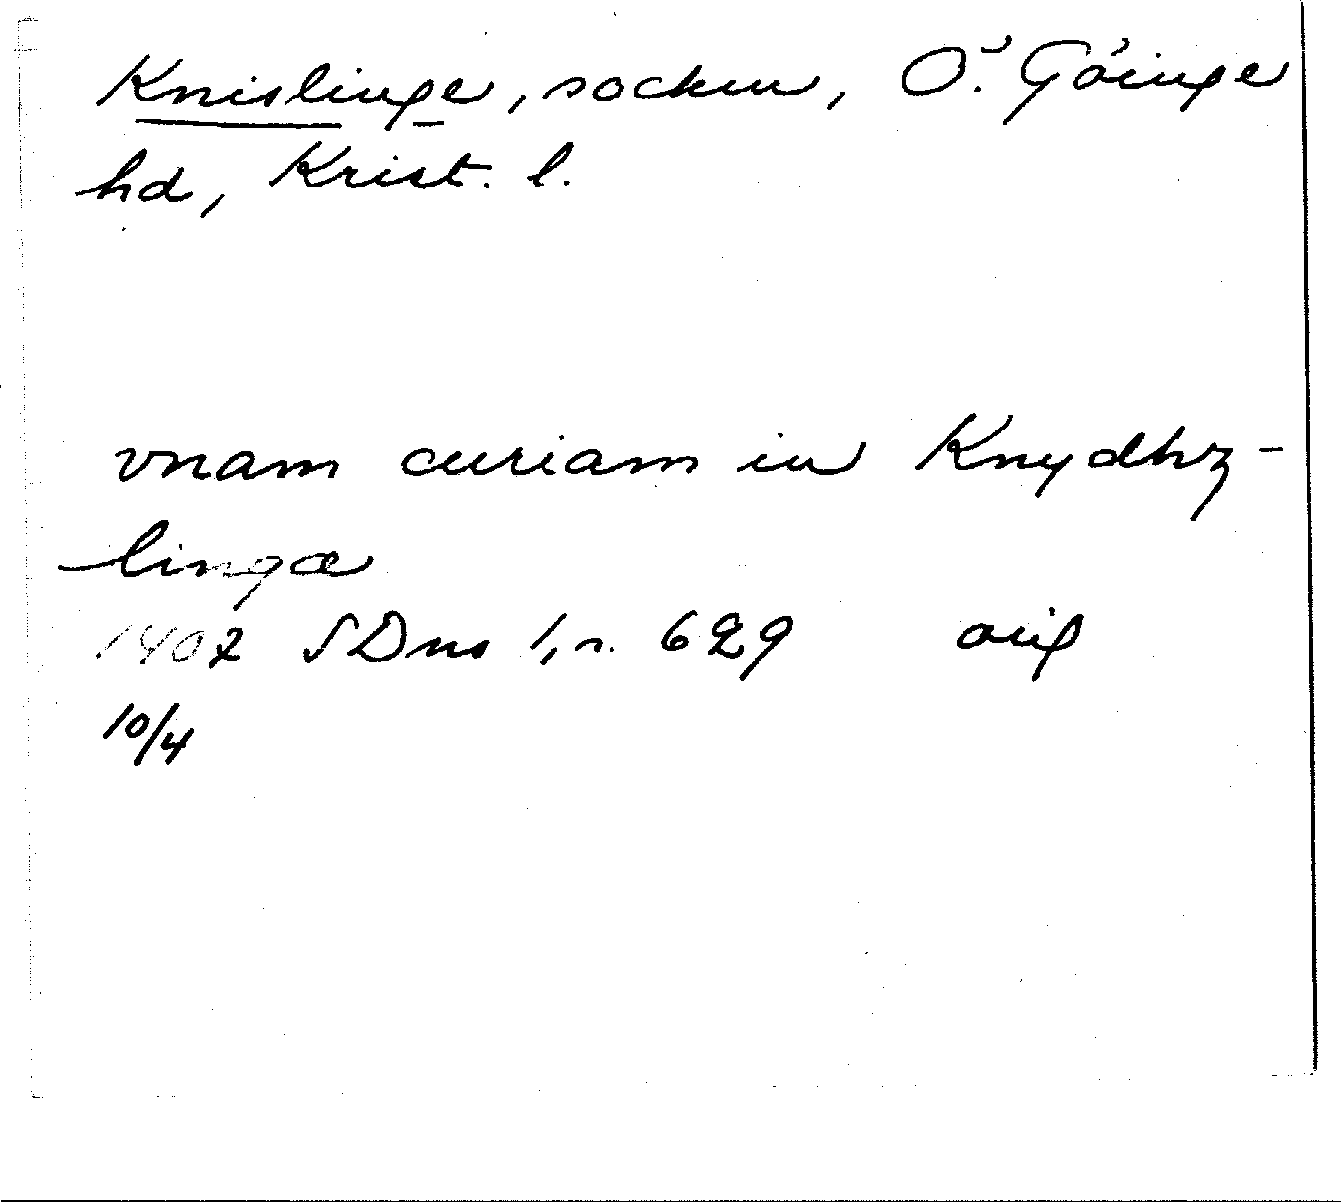 Knislinge, socken, Ö. Göinge
hd, Krist. l.
vnam curiam in Knydhz-
linga
1407 SDns 1, n. 629 orig
10/4